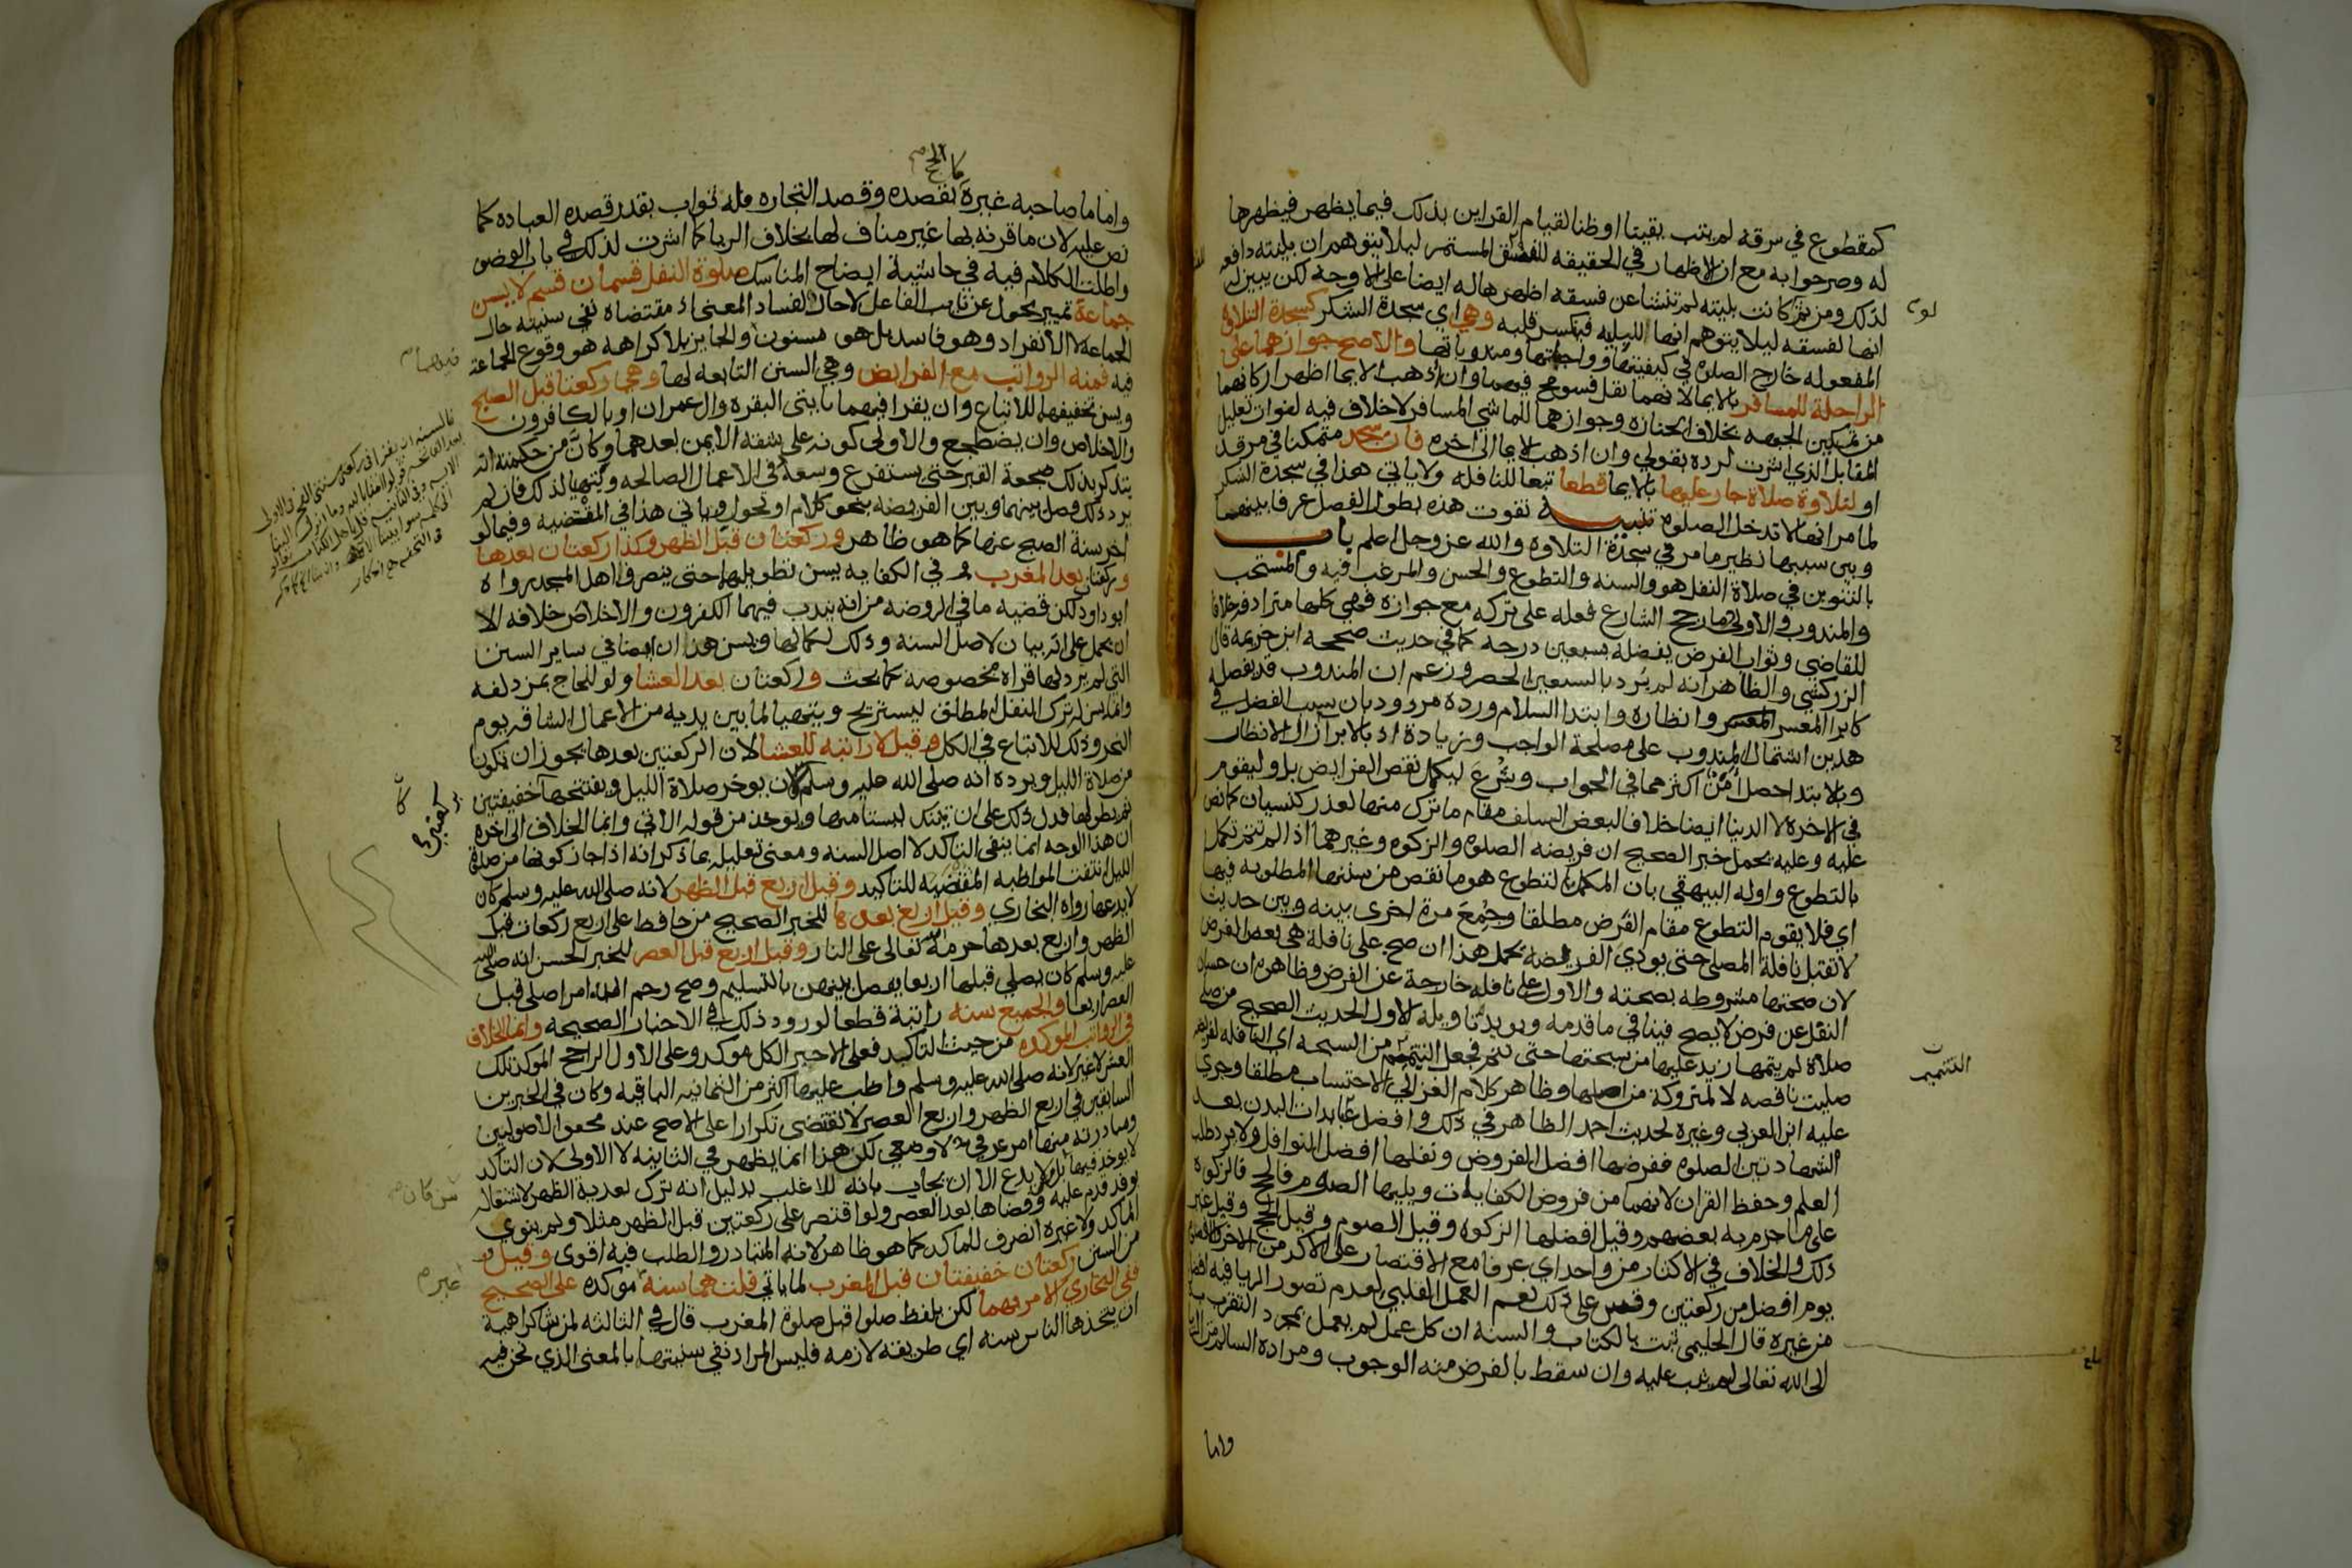 كمقطوع في سرقة لم يتب يقينا او ظنا لقيام القراين بذلك فيما يظهر فيظهرها
له وصرحوا به مع ان الاظهار في الحقيقه للفسق المستمر ليلا يتوهم ان بليته دافعه
لذلك ومن ثم لو كانت بليته لم تنشا عن فسقه اظهرها له ايضا على الاوجه لكن يبين له
انها لفسقه ليلا يتوهم انها لليليه فينكسر قلبه وهي اي سجدة الشكر كسجدة التلاوة
المفعوله خارج الصلوه في كيفيتها وواجباتها ومندوباتها والاصح جوازهما على
الراحلة للمسافر بالايما لانهما نفل فسومح فيهما وان اذهب الايما اظهر اركانهما
من تمكين الجبهه بخلاف الجنازه وجوازهما للماشي المسافر لا خلاف فيه لفوات تعليل
المقابل الذي اشرت لرده بقولي وان اذهب الايما الى اخره فان سجد متمكنا في مرقد
او لتلاوة صلاة جاز عليها بالايما قطعا تبعا للنافله ولا ياتي هذا في سجدة الشكر
لما مر انها لا تدخل الصلوه تنبيه تفوت هذه بطول الفصل عرفا بينهما
وبين سببها نظير ما مر في سجدة التلاوه والله عز وجل اعلم باب
بالتنوين في صلاة النفل هو والسنه والتطوع والحسن والمرغب فيه والمستحب
والمندوب والاولى ما رجح الشارع فعله على تركه مع جوازه فهي كلها مترادفه خلافا
للقاضي وثواب الفرض يفضله بسبعين درجه كما في حديث صححه ابن خزيمه قال
الزركشي والظاهر انه لم يرد بالسبعين الحصر وزعم ان المندوب قد يفضله
كابرا المعسر وانظاره وابتدا السلام ورده مردود بان سبب الفضل في
هذين اشتمال المندوب على مصلحة الواجب وزيادة اذ بالابرا زال الانظار
وبالابتدا حصل امن اكثر مما في الجواب وشرع ليكمل نقص الفرايض بل وليقوم
في الاخرة لا الدنيا ايضا خلافا لبعض السلف مقام ما ترك منها لعذر كنسيان كما نص
عليه وعليه يحمل خبر الصحيح ان فريضه الصلوه والزكوه وغيرهما اذا لم تتم تكمل
بالتطوع واوله البيهقي بان المكمل بالتطوع هو ما نقص من سننها المطلوبه فيها
اي فلا يقوم التطوع مقام الفرض مطلقا وجمع مرة اخرى بينه وبين حديث
لا تقبل نافلة المصلي حتى يودي الفريضه بحمل هذا ان صح على نافلة هي بعض الفرض
لان صحتها مشروطه بصحته والاول على نافله خارجة عن الفرض وظاهره ان حسبان
النفل عن فرض لا يصح فينافي ما قدمه ويويد تاويله الاول الحديث الصحيح من صلى
صلاة لم يتمها زيد عليها من سبحتها حتى تتم فجعل التتميم من السبحه اي النافله لفريضه
صليت ناقصه لا لمتروكة من اصلها وظاهر كلام الغزالي الاحتساب مطلقا وجرى
عليه ابن العربي وغيره لحديث احمد الظاهر في ذلك وافضل عبادات البدن بعد
الشهادتين الصلوه ففرضها افضل الفروض ونفلها افضل النوافل ولا يرد طلب
العلم وحفظ القران لانهما من فروض الكفايات ويليها الصوم فالحج فالزكوة
على ما جزم به بعضهم وقيل افضلها الزكوه وقيل الصوم وقيل الحج وقيل غير
ذلك والخلاف في الاكثار من واحد اي عرفا مع الاقتصار على الاكد من الاخر والا فصوم
يوم افضل من ركعتين وقس على ذلك نعم العمل القلبي لعدم تصور الريا فيه افضل
من غيره قال الحليمي ثبت بالكتاب والسنه ان كل عمل لم يعمل بمجرد التقرب به
الى الله تعالى لم يثب عليه وان سقط بالفرض منه الوجوب ومراده السالم من الريا
واما
لو
التتميم
بلغ
كما الحج
واما ما صاحبه غيره بقصده وقصد التجاره فله ثواب بقدر قصده العباده كما
نص عليه لان ما قرنه بها غير مناف لها بخلاف الريا كما اشرت لذلك في باب الوضو
واطلت الكلام فيه في حاشية ايضاح المناسك صلوة النفل قسمان قسم لا يسن
جماعة تمييز محول عن نايب الفاعل لا حال لفساد المعنى اذ مقتضاه نفي سنيته حال
الجماعة لا الانفراد وهو فاسد بل هو مسنون والجايز بلا كراهه هو وقوع الجماعة
فيه فمنه الرواتب مع الفرايض وهي السنن التابعه لها وهي ركعتا قبل الصبح
ويسن تخفيفهما للاتباع وان يقرا فيهما بايتي البقره وال عمران او بالكافرون
والاخلاص وان يضطجع والاولى كونه على شقه الايمن بعدهما وكان من حكمته انه
يتذكر بذلك ضجعة القبر حتى يستفرغ وسعه في الاعمال الصالحه ويتهيا لذلك فان لم
يرد ذلك فصل بينهما وبين الفريضه بنحو كلام او تحول وياتي هذا في المقضيه وفيما لو
اخر سنة الصبح عنها كما هو ظاهر وركعتان قبل الظهر وكذا ركعتان بعدها
وركعتان بعد المغرب وفي الكفايه يسن تطويلهما حتى ينصرف اهل المسجد رواه
ابو داود لكن قضيه ما في الروضه من انه يندب فيهما الكفرون والاخلاص خلافه الا
ان يحمل على انه بيان لاصل السنه وذلك لكمالها ويسن هذان ايضا في ساير السنن
التي لم يرد لها قراه مخصوصة كما بحث وركعتان بعد العشا ولو للحاج بمزدلفه
وانما سن له ترك النفل المطلق ليستريح ويتهيا لما بين يديه من الاعمال الشاقه يوم
النحر وذلك للاتباع في الكل وقيل لا راتبه للعشا لان الركعتين بعدها يجوز ان تكونا
من صلاة الليل ويرده انه صلى الله عليه وسلم كان يوخر صلاة الليل ويفتتحها بركعتين خفيفتين
ثم يطولها فدل ذلك على ان تينك ليستا منها ويوخذ من قوله الاتي وانما الخلاف الى اخره
ان هذا الوجه انما ينفي التاكد لا اصل السنه ومعنى تعليله بما ذكر انه اذا جاز كونها من صلاة
الليل انتفت المواظبه المقتضيه للتاكيد وقيل اربع قبل الظهر لانه صلى الله عليه وسلم كان
لا يدعها رواه البخاري وقيل اربع بعدها للخبر الصحيح من حافظ على اربع ركعات قبل
الظهر واربع بعدها حرمه الله تعالى على النار وقيل اربع قبل العصر للخبر الحسن انه صلى الله
عليه وسلم كان يصلي قبلها اربعا يفصل بينهن بالتسليم وصح رحم الله امرا صلى قبل
العصر اربعا والجميع سنه راتبة قطعا لورود ذلك في الاخبار الصحيحه وانما الخلاف
في الرواتب الموكده من حيث التاكيد فعلى الاخير الكل موكد وعلى الاول الراجح الموكد تلك
العشر لا غير لانه صلى الله عليه وسلم واظب عليها اكثر من الثمانيه الباقيه وكان في الخبرين
السابقين في اربع الظهر واربع العصر لا تقتضي تكرارا على الاصح عند محققي الاصوليين
ومبادرته منها امر عرفي لا وضعي لكن هذا انما يظهر في الثانيه لا الاولى لان التاكد
لا يوخذ فيها بل من لا يدع الا ان يجاب بانه للاغلب بدليل انه ترك بعدية الظهر لاشتغاله
بوفد قدم عليه وقضاها بعد العصر ولو اقتصر على ركعتين قبل الظهر مثلا ولم ينو
الماكد ولا غيره انصرف للماكد كما هو ظاهر لانه المتبادر والطلب فيه اقوى وقيل
من السنن ركعتان خفيفتان قبل المغرب لما ياتي قلت هما سنه غير موكده على الصحيح
ففي البخاري الامر بهما لكن بلفظ صلوا قبل صلوة المغرب قال في الثالثه لمن شا كراهية
ان يتخذها الناس سنه اي طريقه لازمه فليس المراد نفي سنيتها بالمعنى الذي نحن فيه
فيهما
بركعتين
من كان
غير